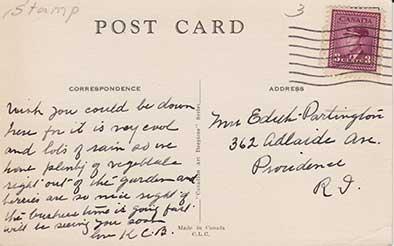 Stamp
3
POST CARD
CANADA
3 CENTS 3
CORRESPONDENCE
ADDRESS
Wish you could be down
here for it is very cool
and lots of rain so we
have plenty of vegetable
right out of the garden and
berries are so nice right off
the bushes time is going fast.
will be seeing you soon
love K.C.B.
"Canadian Art Deeptone" Series.
Mrs Edith Partington
362 Adelaide Ave.
Providence
R.I.
Made in Canada
C.L.C.